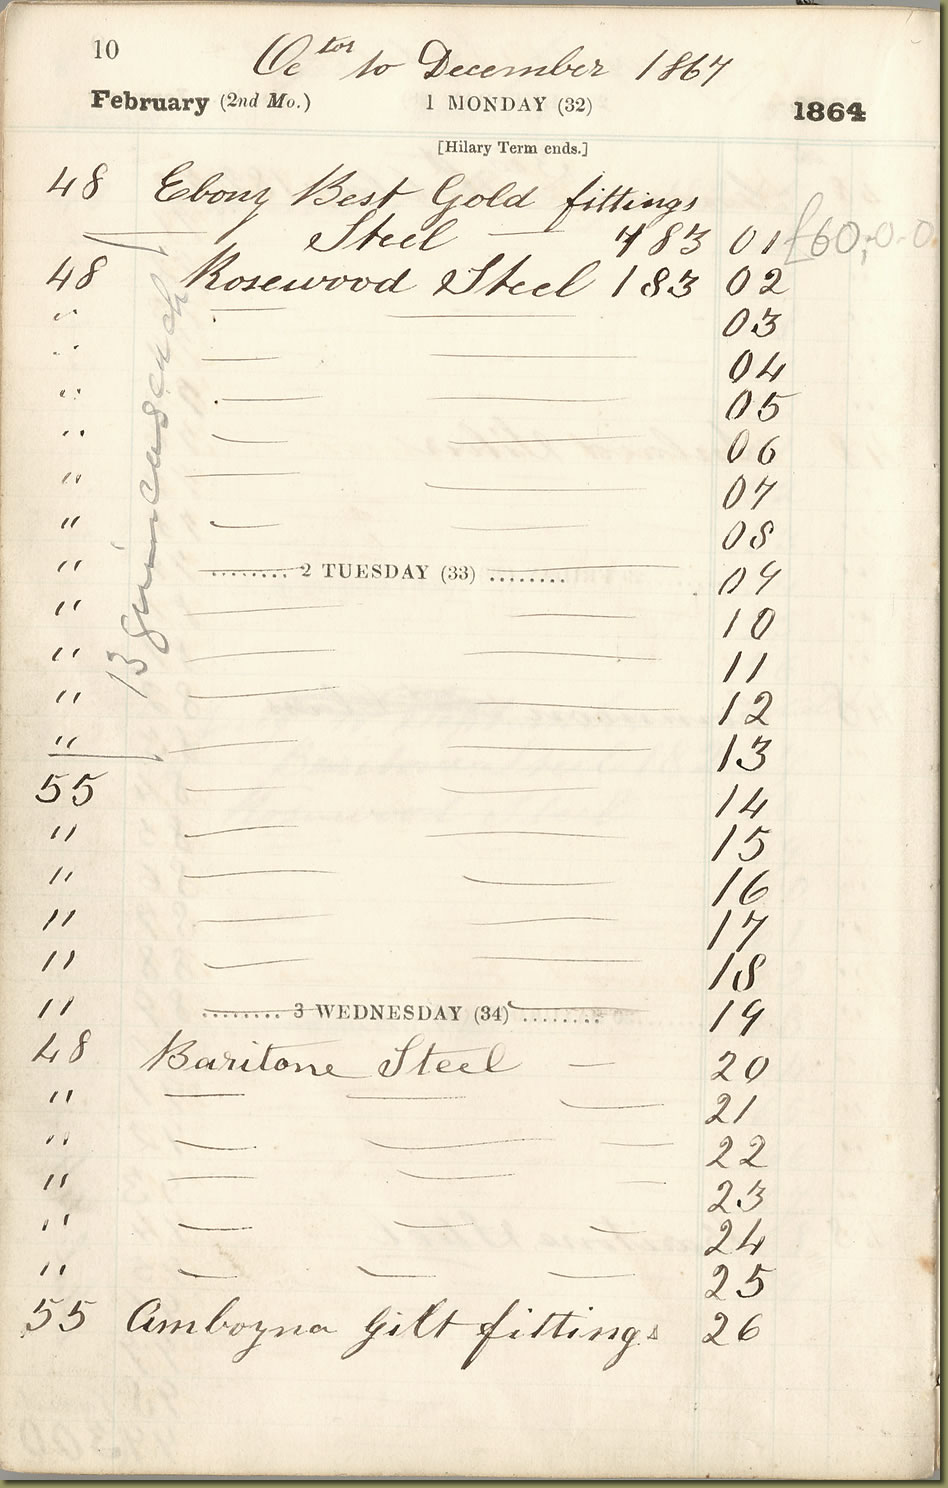 10
Oc^tor to December 1867
February (2nd Mo.) 1 MONDAY (32) 1864
[Hilary Term ends.]
48 Ebony Best Gold fittings
Steel 183 01 £60,,0-0
48 Rosewood Steel 183 02
" 03
" 04
" 05
" 06
" 07
" 08
" 2 TUESDAY (33) 09
" 10
" 11
" 12
" 13
13 guineas each
55 14
" 15
" 16
" 17
" 18
" 3 WEDNESDAY (34) 19
48 Baritone Steel — 20
" 21
" 22
" 23
" 24
" 25
55 Amboyna Gilt fittings 26